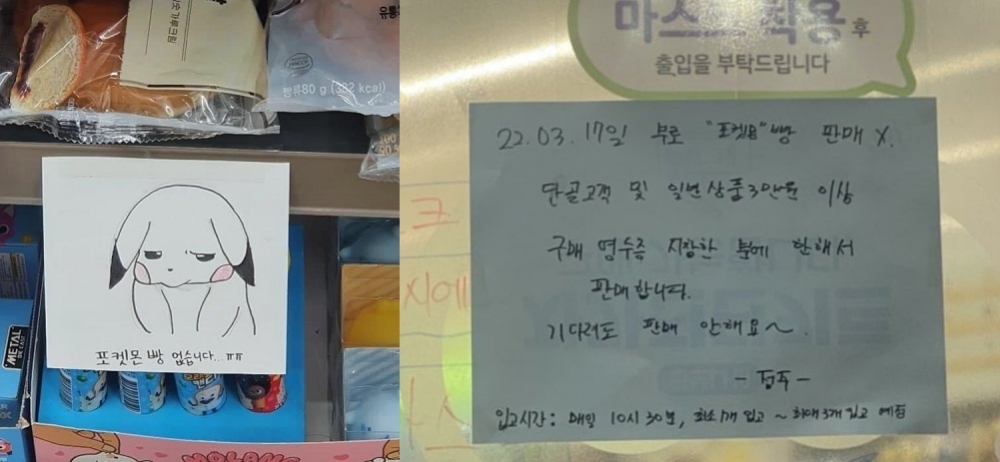 유통
빵류80 g (382 kcal)
METAL
포켓몬 빵 없습니다...ㅠㅠ
MOLANG
마스크 착용 후
출입을 부탁드립니다
22.03.17일 부로 "포켓몬"빵 판매 X.
단골고객 및 일반상품3만원 이상
구매 영수증 지참한 분에 한해서
판매합니다.
기다려도 판매 안해요~.
- 점주 -
입고시간: 매일 10시 30분, 최소1개 입고 ~ 최대3개 입고 예정
크
지에